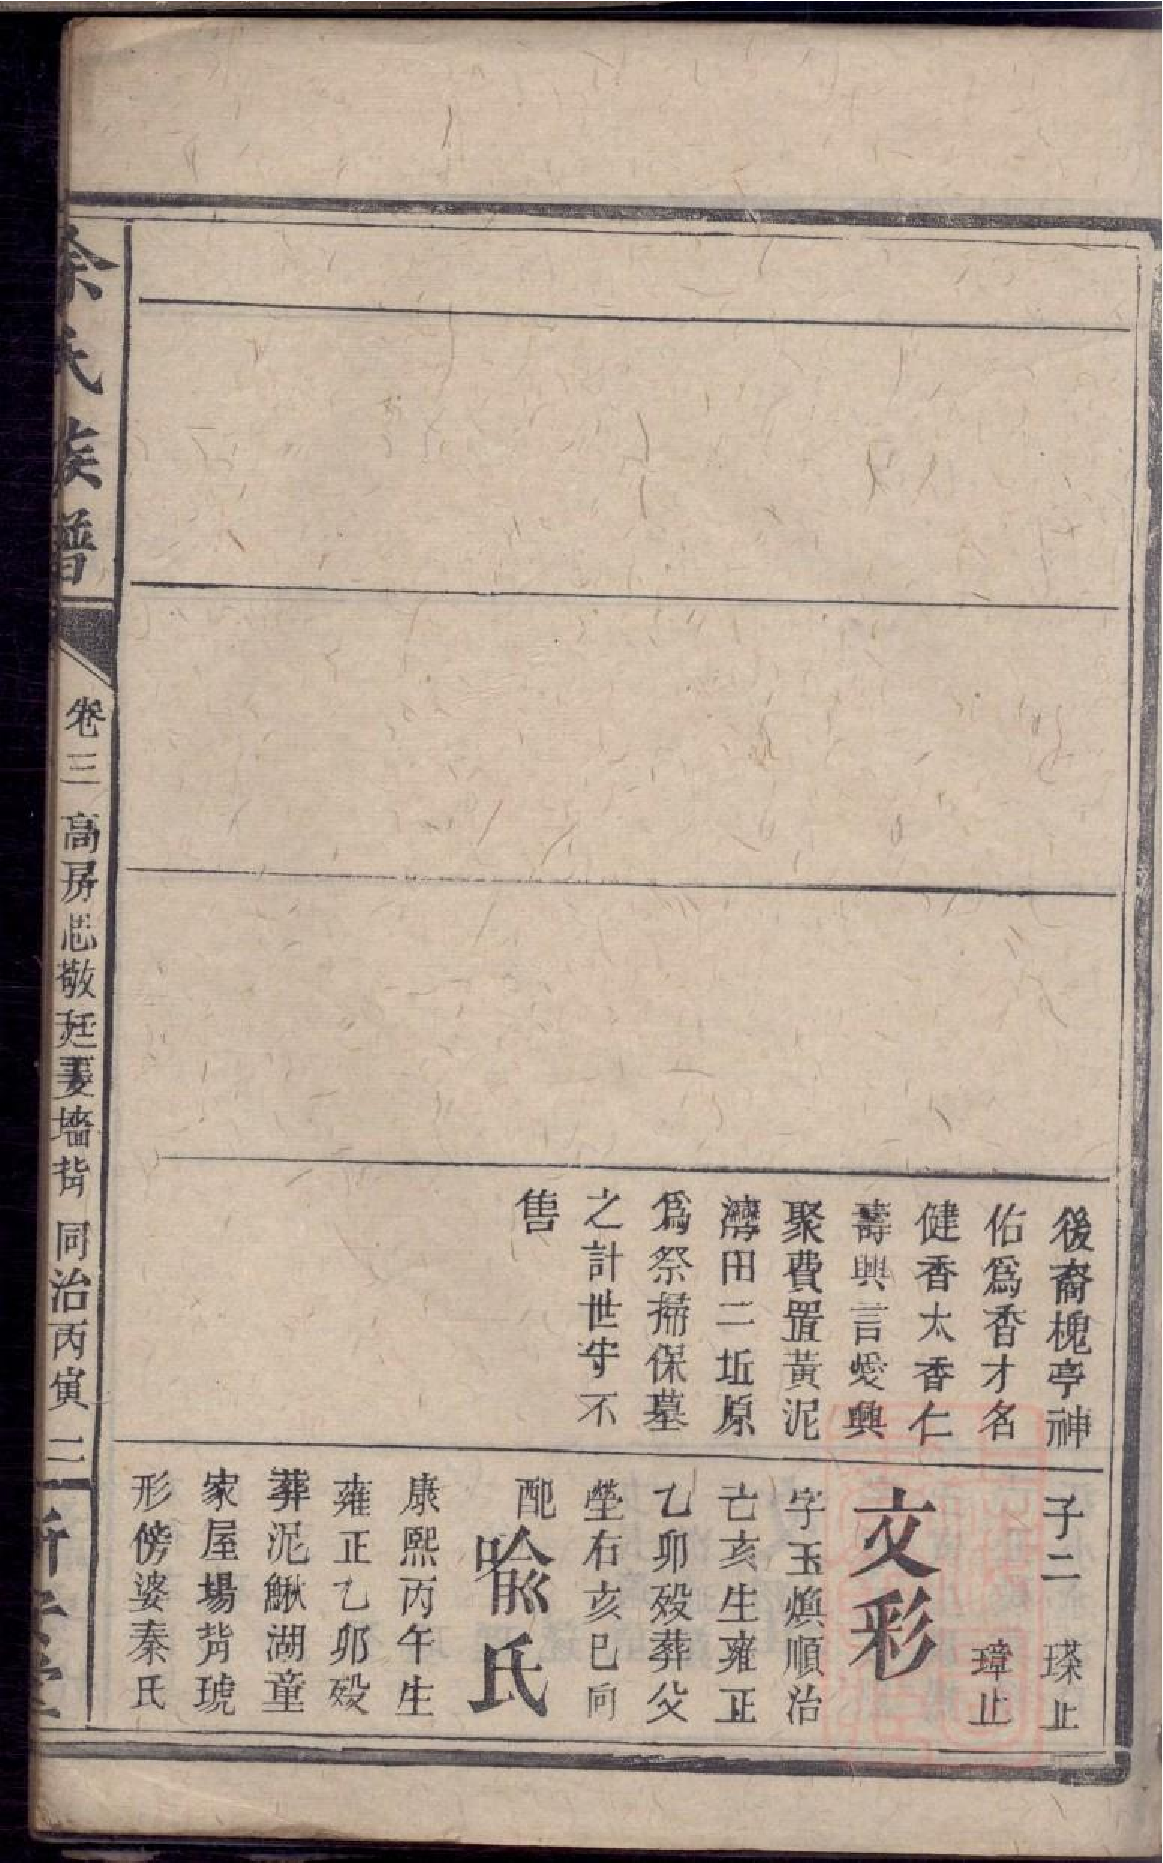 後裔槐亭神
佑爲香才名
健香太香仁
壽興言愛興
聚費置黃泥
灣田二坵原
爲祭掃保墓
之計世守不
售
子二 璨止
璋止
文彩
字玉煥順治
己亥生雍正
乙卯歿葬父
塋右亥巳向
配
喻氏
康熙丙午生
雍正乙卯歿
葬泥鰍湖童
家屋場背琥
形傍婆秦氏
余氏族譜
卷三 高房志敬廷憂墻背 同治丙寅 二